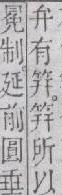 弁有笄。笄所以
冕制。延前圓垂